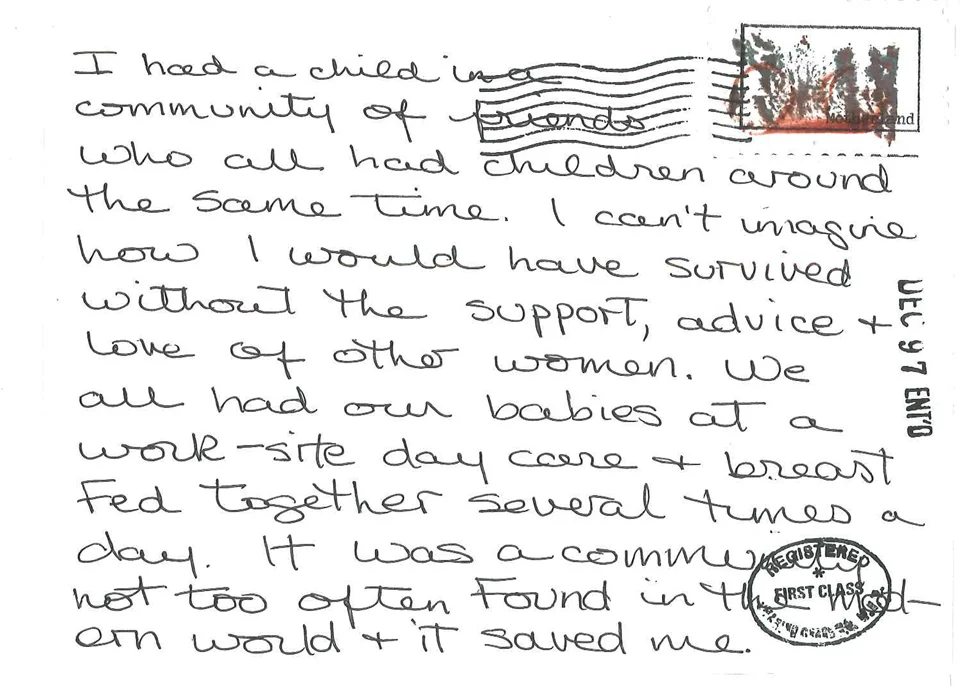 I had a child in a
community of friends
who all had children around
the same time. I can't imagine
how I would have survived
without the support, advice +
love of other women. We
all had our babies at a
work-site day care + breast
fed together several times a
day. It was a community
not too often found in the mod-
ern world + it saved me.
Motherland
DEC 97 ENT'D
REGISTERED
FIRST CLASS